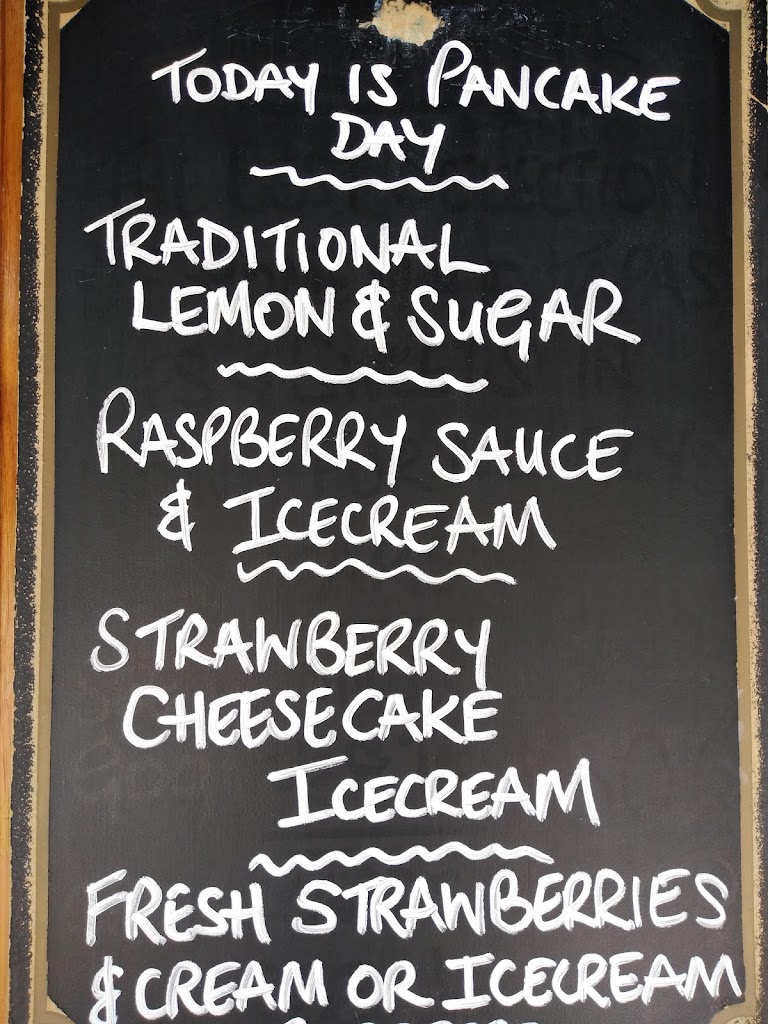 TODAY IS PANCAKE
DAY
TRADITIONAL
LEMON & SUGAR
RASPBERRY SAUCE
& ICECREAM
STRAWBERRY
CHEESECAKE
ICECREAM
FRESH STRAWBERRIES
& CREAM OR ICECREAM